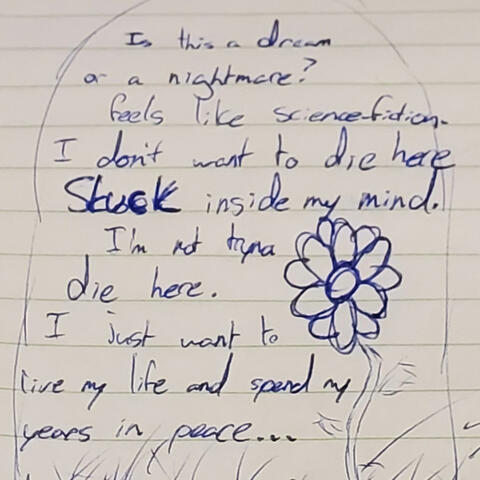 Is this a dream
or a nightmare?
feels like science-fiction.
I don't want to die here
Stuck inside my mind.
I'm not tryna
die here.
I just want to
live my life and spend my
years in peace...